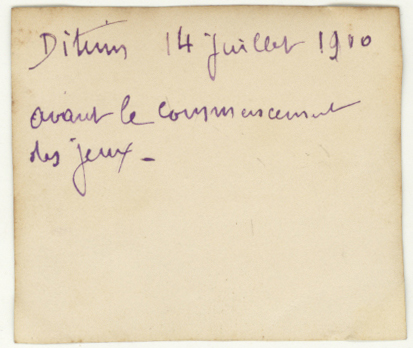 Ditinn 14 juillet 1910
avant le commencement
des jeux.